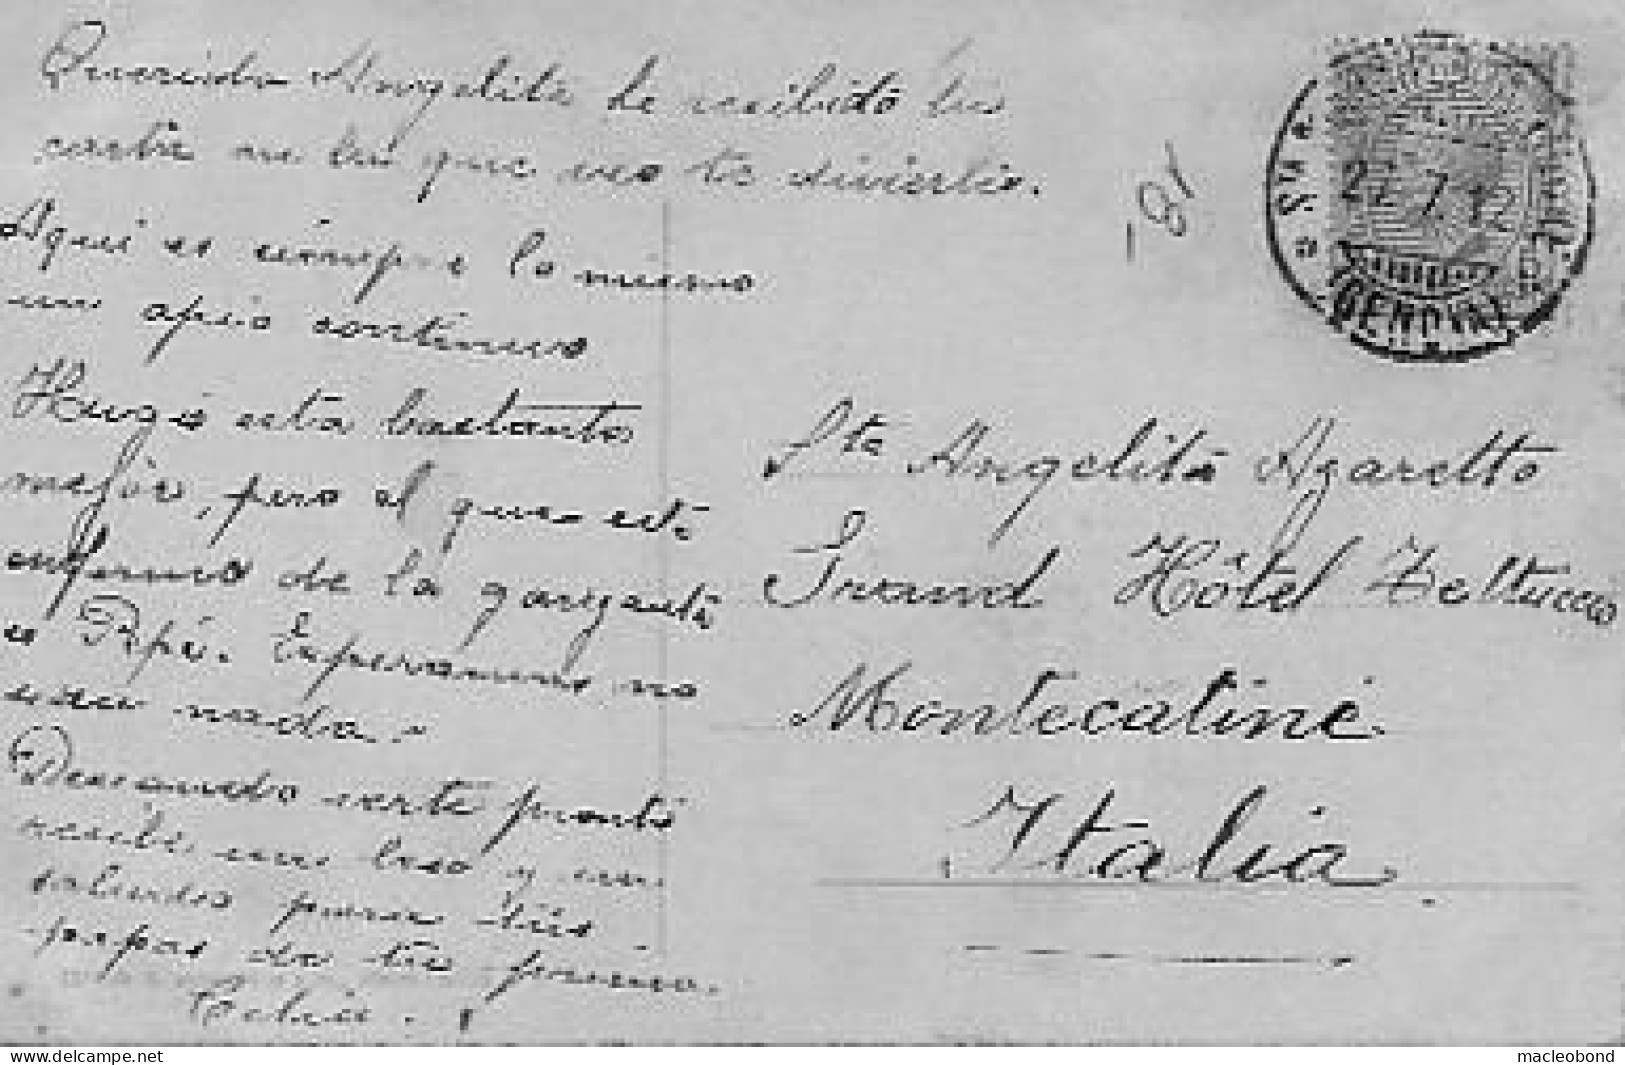 Querida Angelita he recibido tu
carta en la que veo te diviertes.
Aquí es siempre lo mismo
un apeio continuo
Hugo esta bastante
mejor, pero el que está
enfermo de la garganta
es Pepé. Esperamos no
sea nada.
Deseando verte pronto
recibe un beso y un
saludo para tús
papas de tu prima.
Celia.
-181
22 7 12
(GENOVA)
Sta Angelita Azaretto
Grand Hôtel Tettuccio
Montecatini
Italia
www.delcampe.net
macleobond